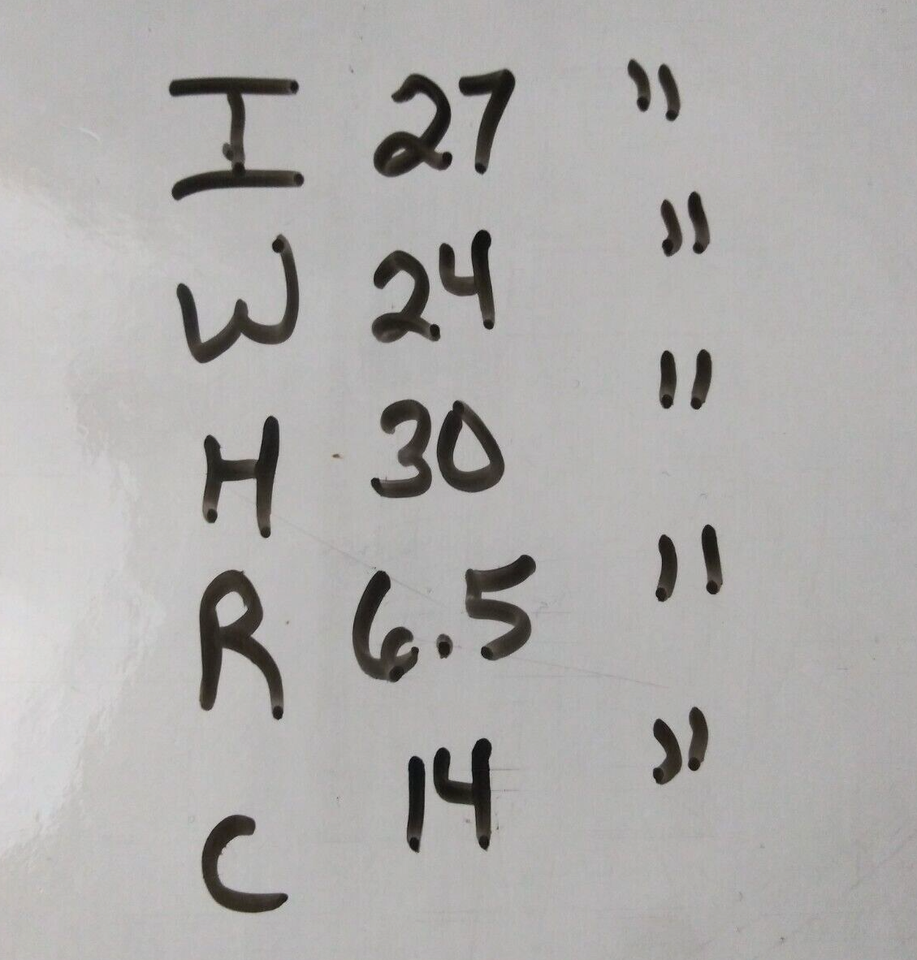 I 27 "
W 24 "
H 30 "
R 6.5 "
C 14 "